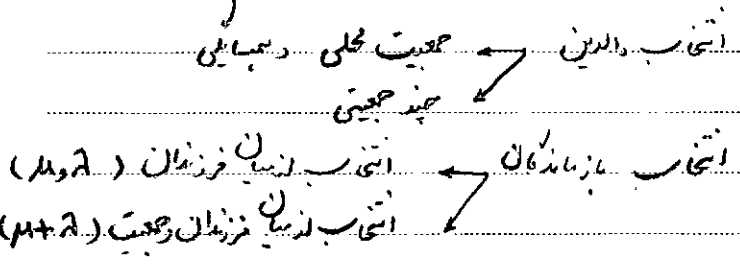 انتخاب والدین ← جمعیت محلی و همسایگی
چند جمعیتی
انتخاب بازماندگان ← انتخاب از میان فرزندان (μ و λ)
انتخاب از میان فرزندان و جمعیت (μ+λ)